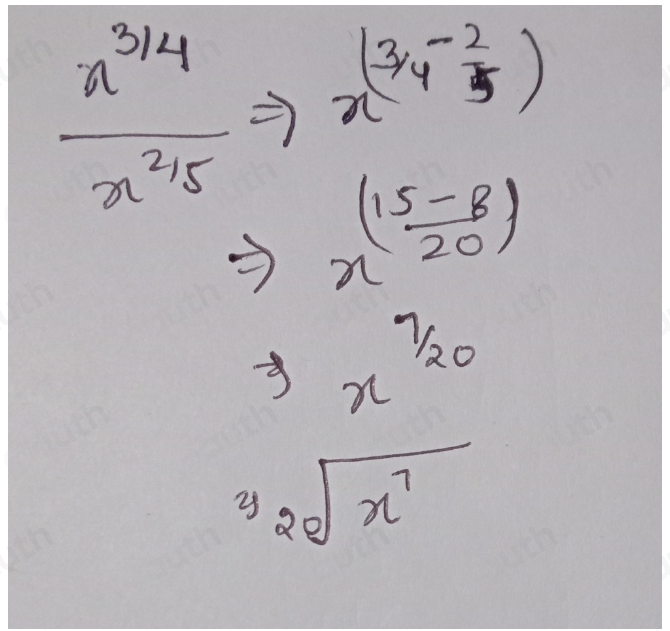 x^3/4 / x^2/5 ⇒ x^(3/4 - 2/5)
⇒ x^(15-8/20)
⇒ x^7/20
⇒ 20√x^7